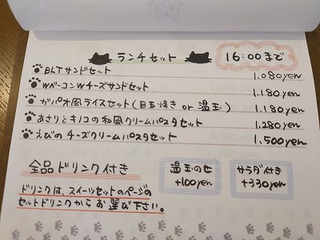 ランチセット
16:00まで
BLTサンドセット 1.080yen
WベーコンWチーズサンドセット 1.180yen
ガパオ風ライスセット(目玉焼き or 温玉) 1.180yen
あさりとキノコの和風クリームパスタセット 1.280yen
えびのチーズクリームパスタセット 1.500yen
全品ドリンク付き
温玉のせ
+100yen
サラダ付き
+330yen
ドリンクは、スイーツセットのページの
セットドリンクからお選び下さい。